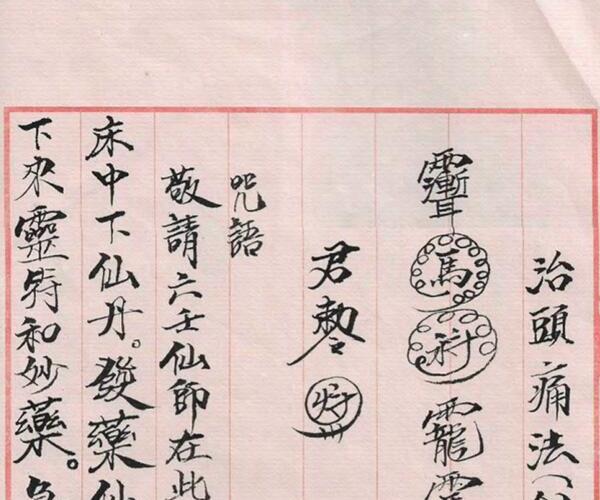 治頭痛法
馬
君勅
咒語
敬請六壬仙師在此
床中下仙丹。發藥仙
下來靈符和妙藥。急